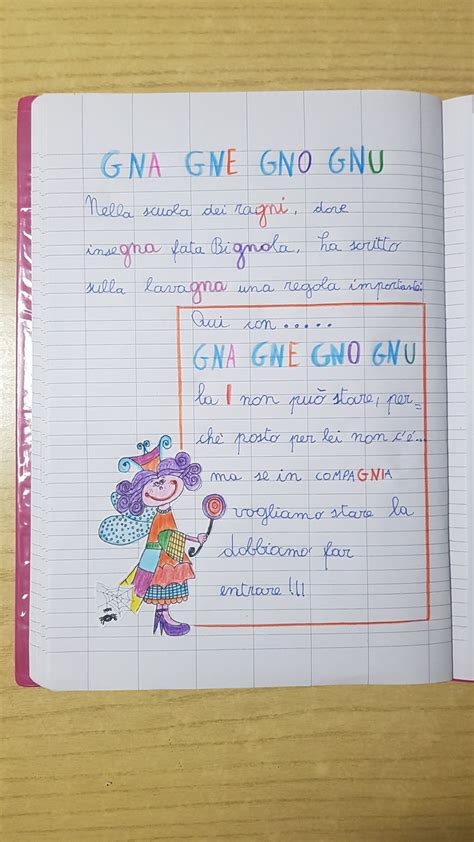 GNA GNE GNO GNU
Nella scuola dei ragni, dove
insegna fata Bignola, ha scritto
sulla lavagna una regola importante:
Qui con .....
GNA GNE GNO GNU
la I non può stare, per=
chè posto per lei non c'è...
ma se in COMPAGNIA
vogliamo stare la
dobbiamo far
entrare!!!